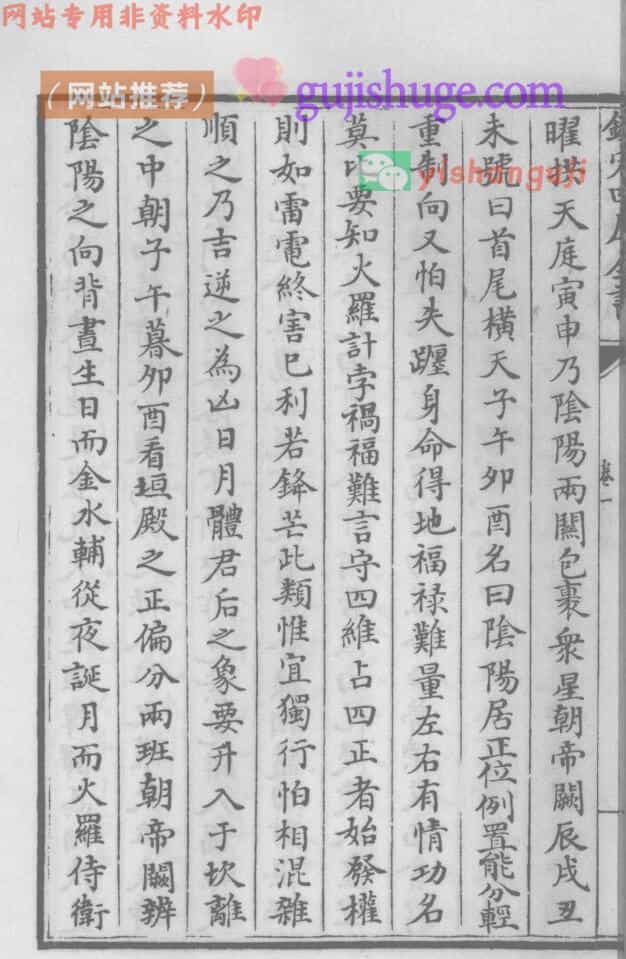 网站专用非资料水印
（网站推荐）
gujishuge.com
yishanguji
欽定四庫全書
卷一
曜拱天庭寅申乃陰陽兩關包裹衆星朝帝闕辰戌丑
未號曰首尾橫天子午卯酉名曰陰陽居正位例置能分輕
重制向又怕失躔身命得地福祿難量左右有情功名
莫比要知火羅計孛禍福難言守四維占四正者始發權
則如雷電終害已利若鋒芒此類惟宜獨行怕相混雜
順之乃吉逆之為凶日月體君后之象要升入于坎離
之中朝子午暮卯酉看垣殿之正偏分兩班朝帝闕辨
陰陽之向背晝生日而金水輔從夜誕月而火羅侍衛